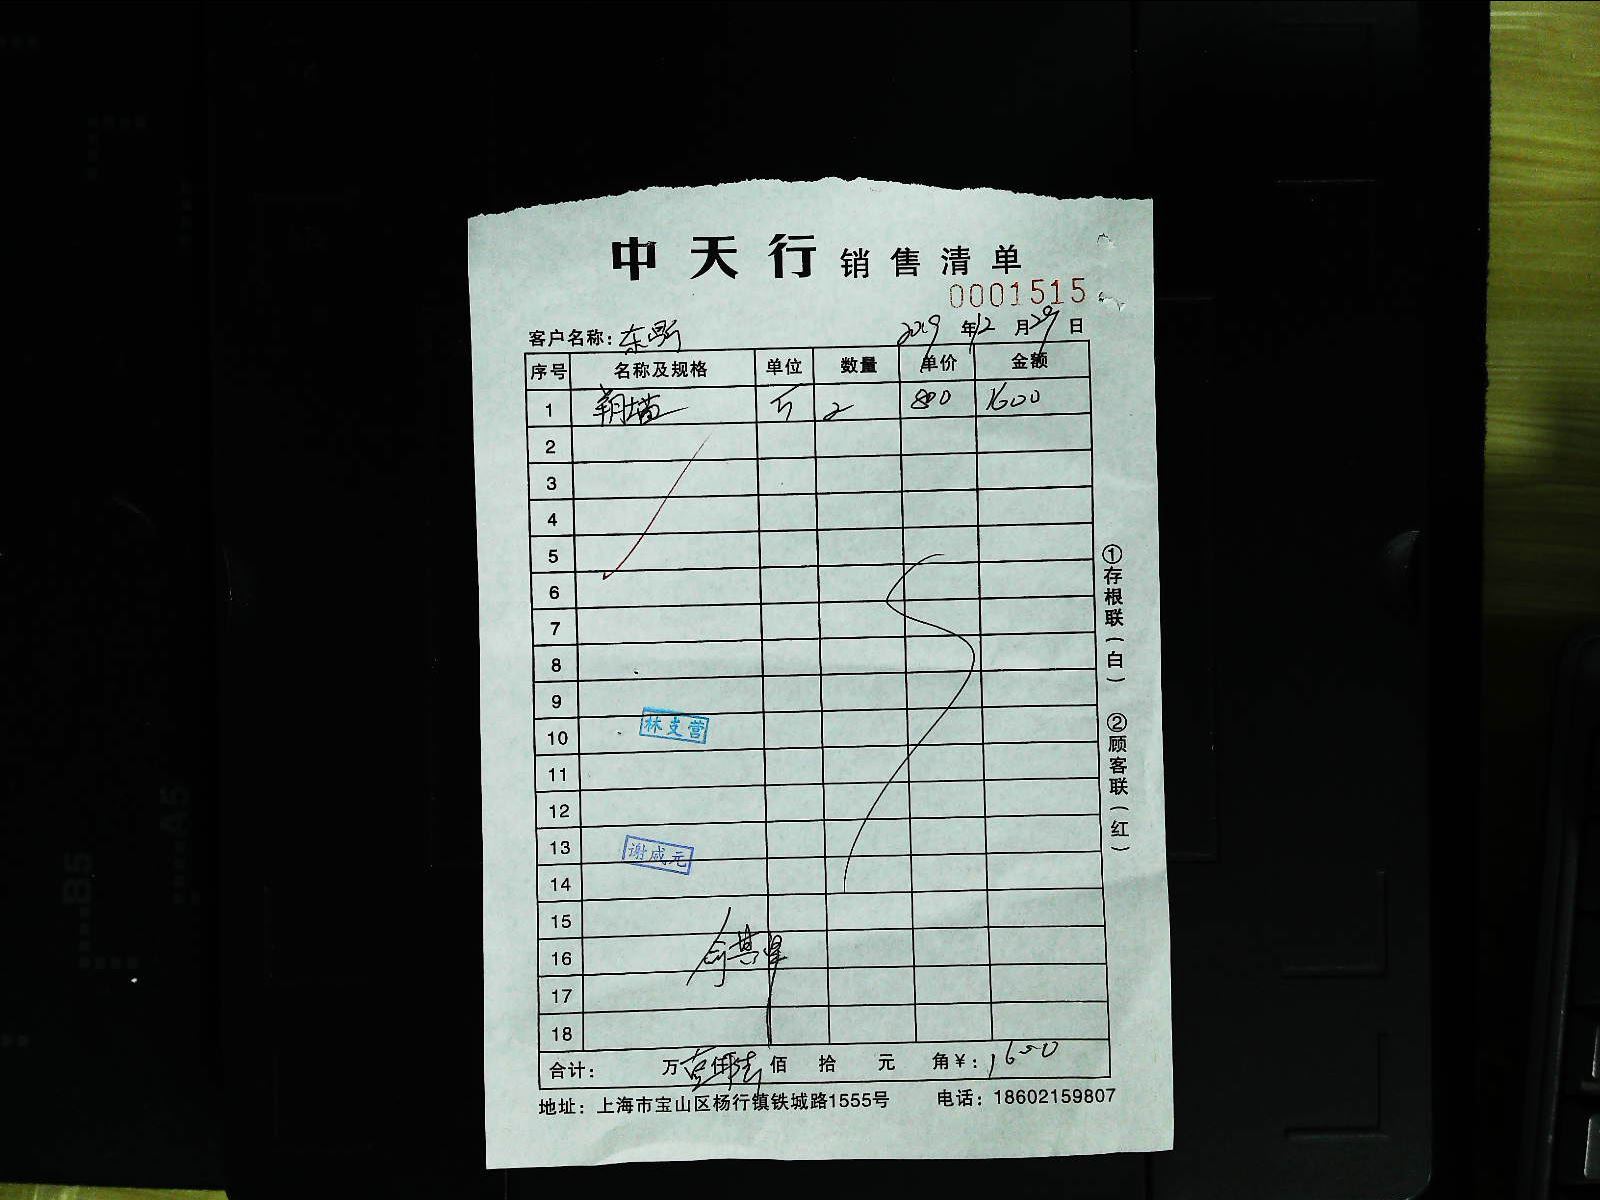 中天行 销售清单
0001515
客户名称: 2019 年 12 月 29 日
序号 名称及规格 单位 数量 单价 金额
1 2 800 1600
2
3
4
5
6
7
8
9
10
林支营
11
12
13
谢成元
14
15
16
17
18
合计: 万 壹仟陆 佰 拾 元 角 ¥: 1600
地址: 上海市宝山区杨行镇铁城路1555号 电话: 18602159807
①存根联(白) ②顾客联(红)
B5
A5